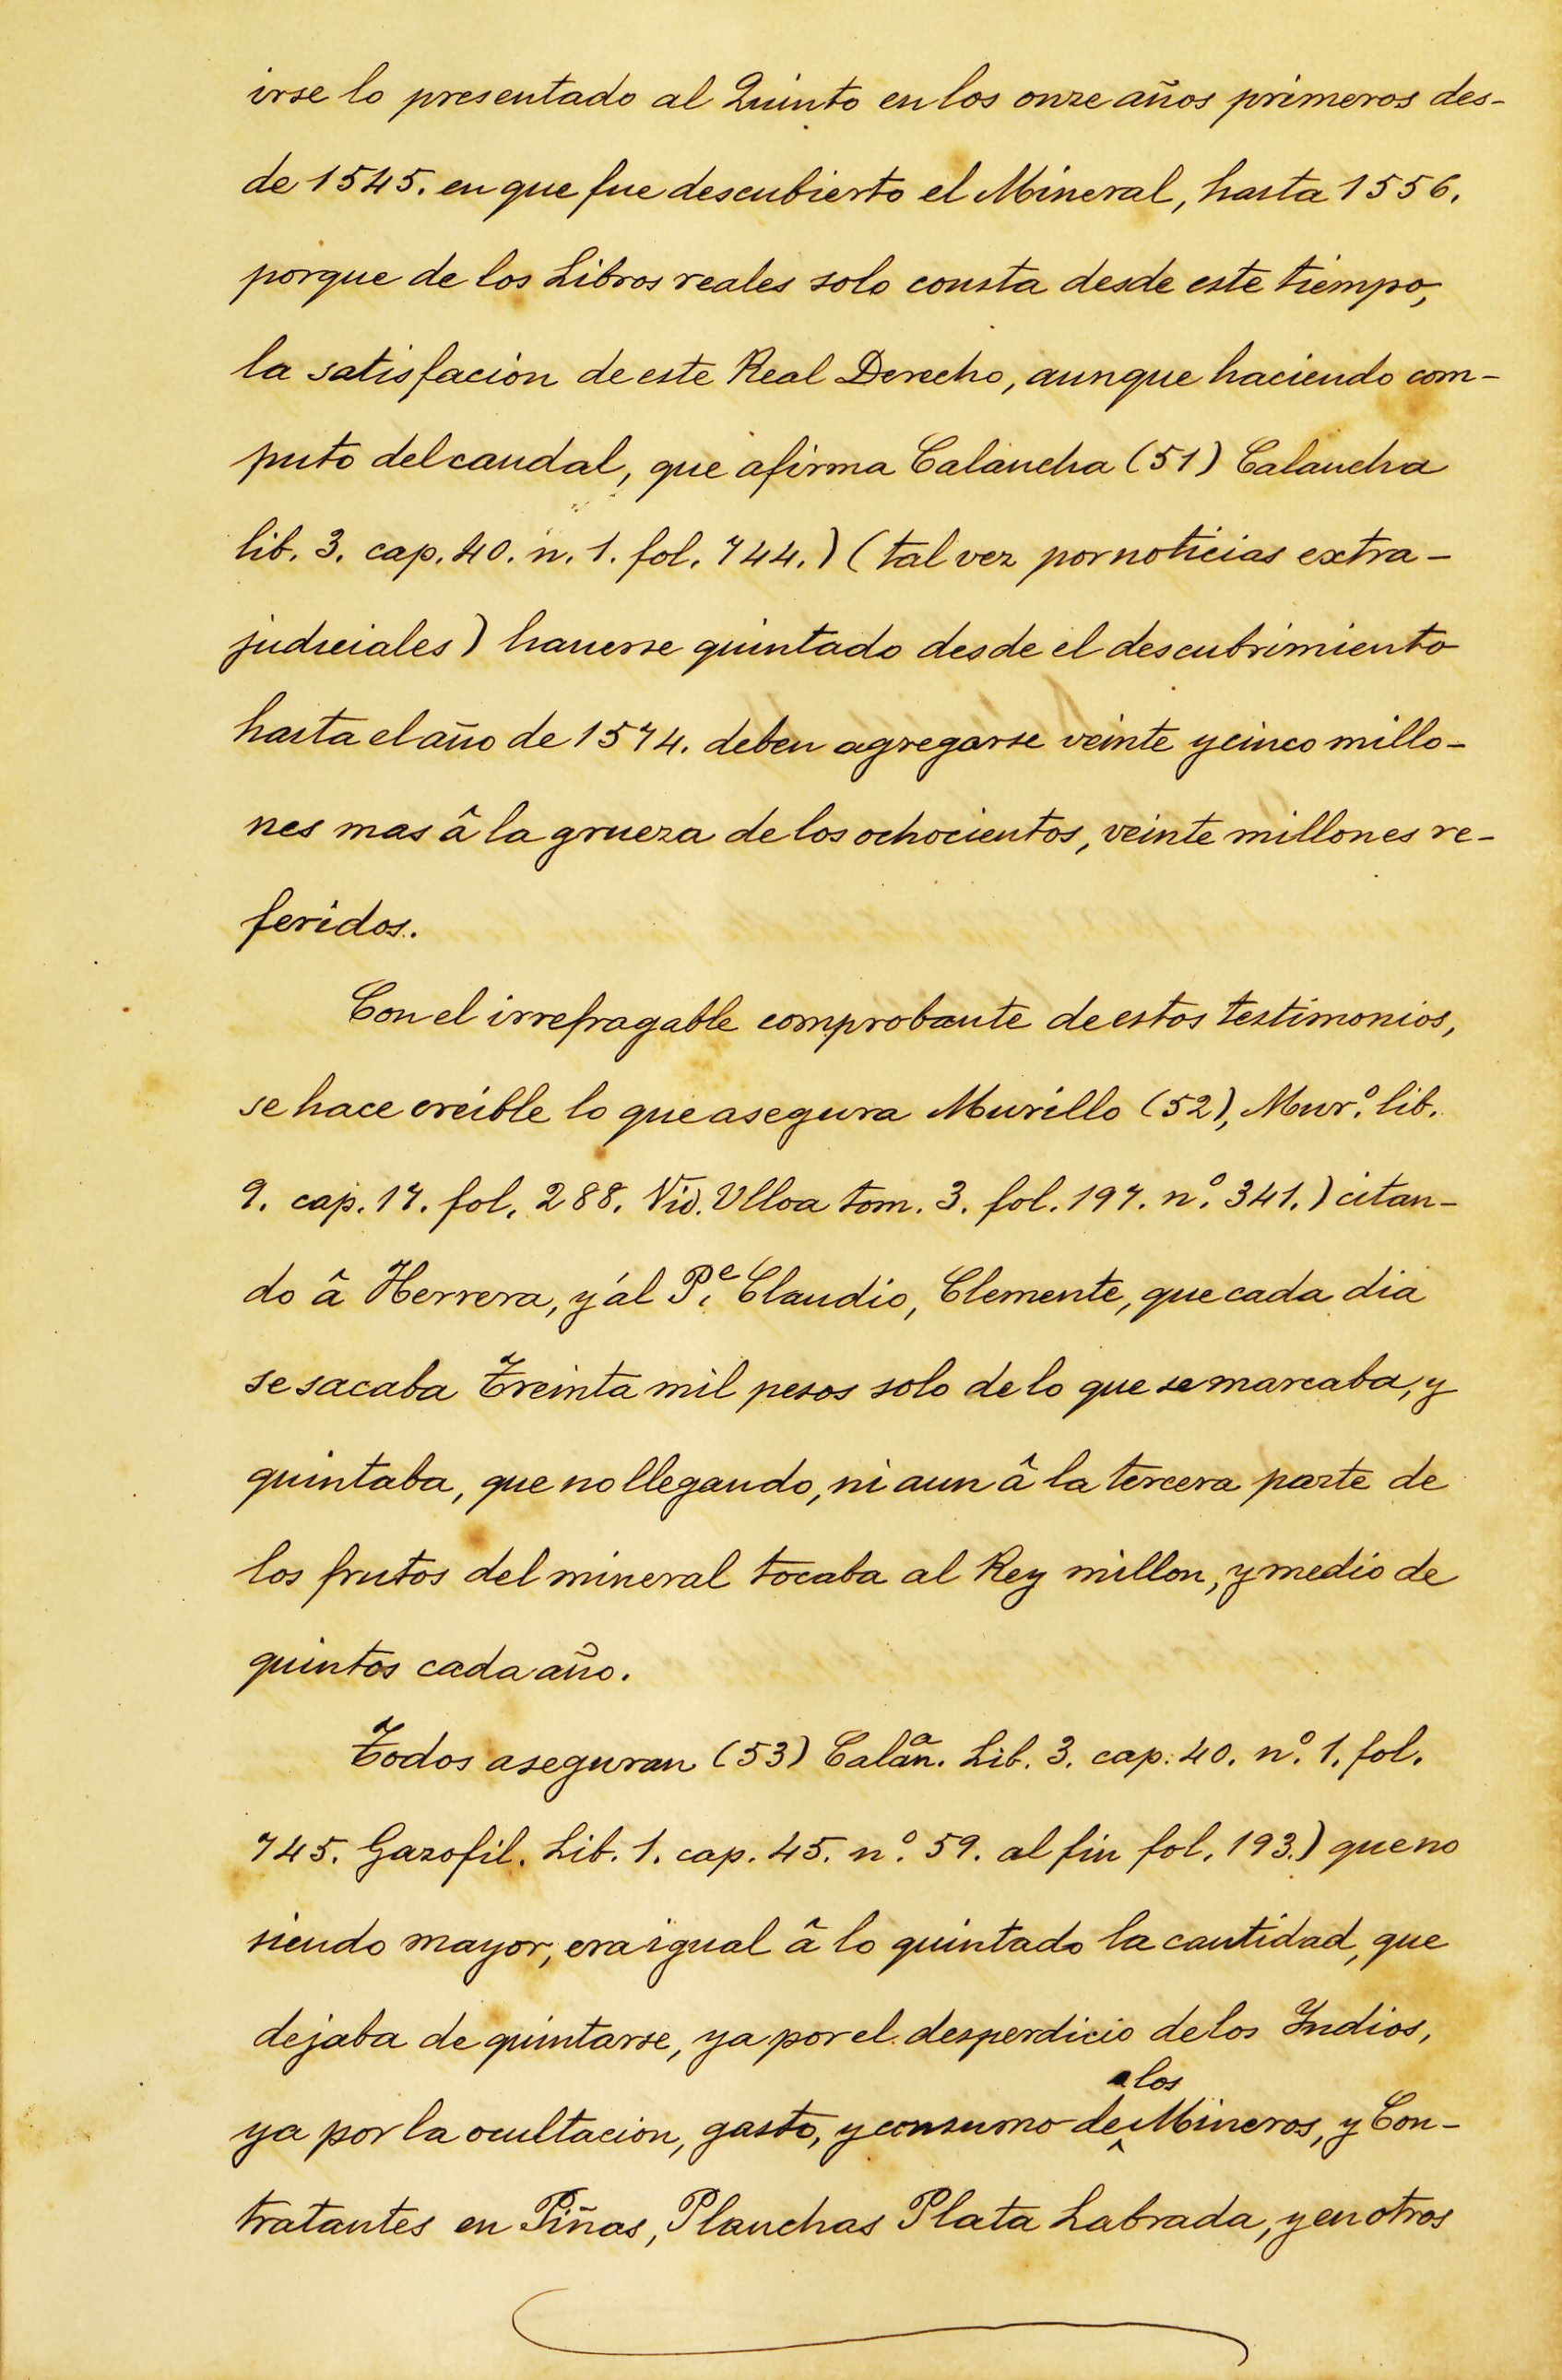 irse lo presentado al Quinto en los onze años primeros des-
de 1545. en que fue descubierto el Mineral, hasta 1556.
porque de los Libros reales solo consta desde este tiempo,
la satisfacion de este Real Derecho, aunque haciendo com-
puto del caudal, que afirma Calancha (51) Calancha
lib. 3. cap. 40. n. 1. fol. 744.) (tal vez por noticias extra-
judiciales) hauerse quintado desde el descubrimiento
hasta el año de 1574. deben agregarse veinte y cinco millo-
nes mas â la grueza de los ochocientos, veinte millones re-
feridos.
Con el irrefragable comprobante de estos testimonios,
se hace creible lo que asegura Murillo (52), Mur.º lib.
9. cap. 17. fol. 288. Vid. Ulloa tom. 3. fol. 197. nº. 341.) citan-
do â Herrera, y ál P.e Claudio, Clemente, que cada dia
se sacaba Treinta mil pesos solo de lo que se marcaba, y
quintaba, que no llegando, ni aun â la tercera parte de
los frutos del mineral tocaba al Rey millon, y medio de
quintos cada año.
Todos aseguran (53) Calan.a Lib. 3. cap. 40. nº. 1. fol.
745. Gazofil. Lib. 1. cap. 45. nº. 59. al fin fol. 193.) que no
siendo mayor, era igual â lo quintado la cantidad, que
dejaba de quintarse, ya por el desperdicio de los Indios,
ya por la ocultacion, gasto, y consumo de los Mineros, y Con-
tratantes en Piñas, Planchas Plata Labrada, y en otros